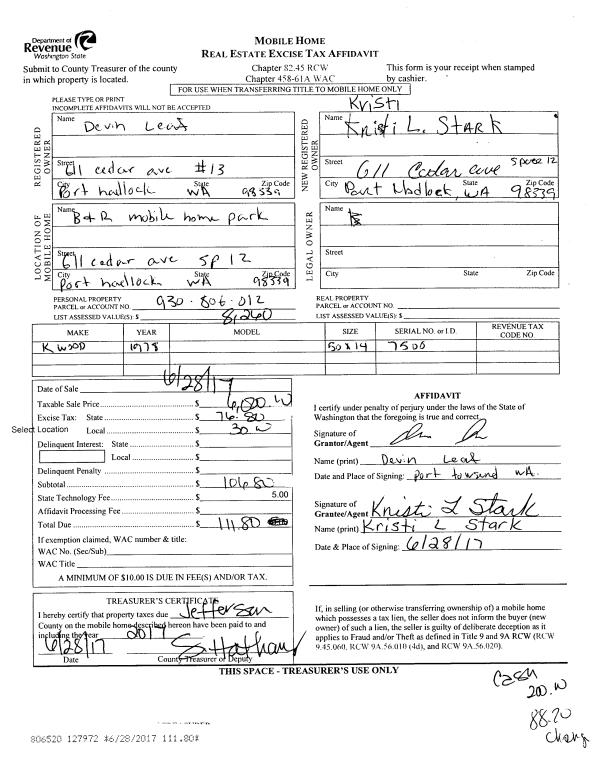 Department of
Revenue
Washington State
MOBILE HOME
REAL ESTATE EXCISE TAX AFFIDAVIT
Submit to County Treasurer of the county
in which property is located.
Chapter 82.45 RCW
Chapter 458-61A WAC
This form is your receipt when stamped
by cashier.
FOR USE WHEN TRANSFERRING TITLE TO MOBILE HOME ONLY
PLEASE TYPE OR PRINT
INCOMPLETE AFFIDAVITS WILL NOT BE ACCEPTED
REGISTERED OWNER
Name Devin Leat
Street 611 cedar ave #13
City State Zip Code
Port hadlock WA 98339
Kristi
NEW REGISTERED OWNER
Name Kristi L. STARK
Street 611 Cedar ave Space 12
City State Zip Code
Port Hadlock, WA 98339
LOCATION OF MOBILE HOME
Name B&R mobile home park
Street 611 cedar ave SP 12
City State Zip Code
Port hadlock WA 98339
LEGAL OWNER
Name
Street
City State Zip Code
PERSONAL PROPERTY
PARCEL or ACCOUNT NO. 930·806·012
LIST ASSESSED VALUE(S): $ 8,260
REAL PROPERTY
PARCEL or ACCOUNT NO.
LIST ASSESSED VALUE(S): $
MAKE YEAR MODEL SIZE SERIAL NO. or I.D. REVENUE TAX CODE NO.
KWOOD 1978 50x14 7500
Date of Sale 6/28/17
Taxable Sale Price $ 6,000.00
Excise Tax: State $ 76.80
Select Location Local $ 30.00
Delinquent Interest: State $
Local $
Delinquent Penalty $
Subtotal $ 106.80
State Technology Fee $ 5.00
Affidavit Processing Fee $
Total Due $ 111.80
If exemption claimed, WAC number & title:
WAC No. (Sec/Sub)
WAC Title
A MINIMUM OF $10.00 IS DUE IN FEE(S) AND/OR TAX.
AFFIDAVIT
I certify under penalty of perjury under the laws of the State of
Washington that the foregoing is true and correct.
Signature of
Grantor/Agent
Name (print) Devin Leat
Date and Place of Signing: Port townsend WA.
Signature of
Grantee/Agent Kristi L Stark
Name (print) Kristi L Stark
Date & Place of Signing: 6/28/17
TREASURER'S CERTIFICATE
I hereby certify that property taxes due Jefferson
County on the mobile home described hereon have been paid to and
including the year 2017
6/28/17
Date County Treasurer or Deputy
If, in selling (or otherwise transferring ownership of) a mobile home
which possesses a tax lien, the seller does not inform the buyer (new
owner) of such a lien, the seller is guilty of deliberate deception as it
applies to Fraud and/or Theft as defined in Title 9 and 9A RCW (RCW
9.45.060, RCW 9A.56.010 (4d), and RCW 9A.56.020).
THIS SPACE - TREASURER'S USE ONLY
Cash
200.00
88.20
Chang
806520 127972 #6/28/2017 111.80#